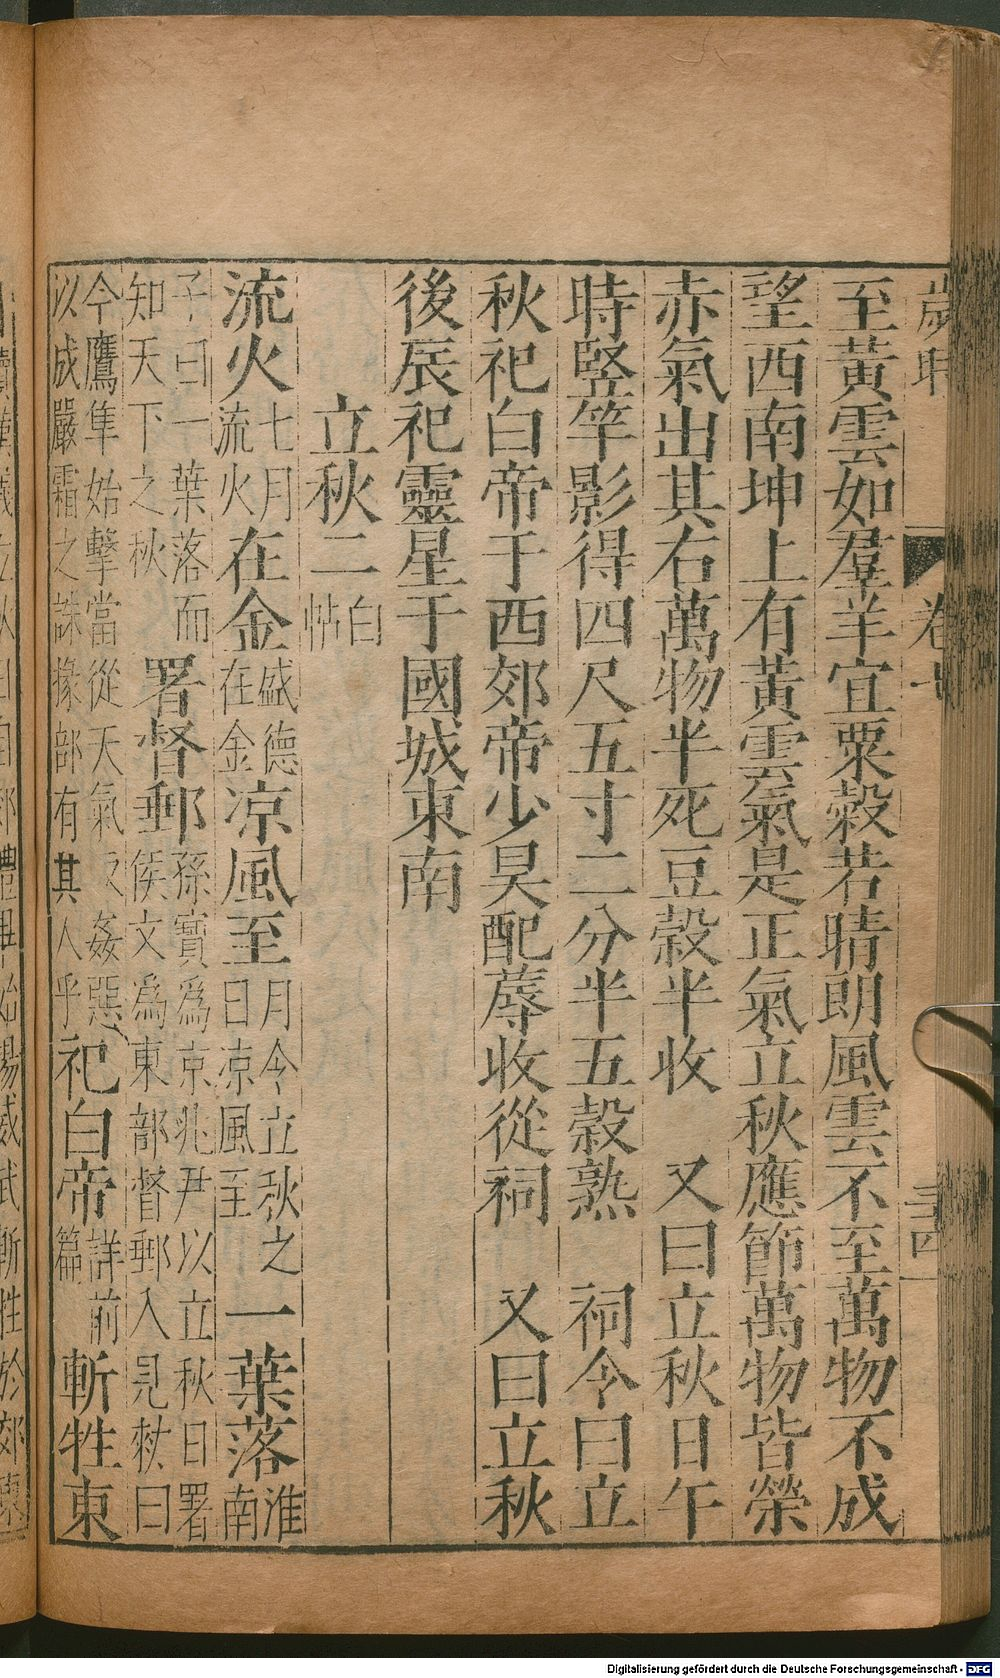 歲時
卷
至黃雲如羣羊宜粟穀若晴朗風雲不至萬物不成
望西南坤上有黃雲氣是正氣立秋應節萬物皆榮
赤氣出其右萬物半死豆穀半收　又曰立秋日午
時竪竿影得四尺五寸二分半五穀熟　祠令曰立
秋祀白帝于西郊帝少昊配蓐收從祠　又曰立秋
後辰祀靈星于國城東南
立秋二
白
帖
流火
七月
流火
在金
盛德
在金
凉風至
月令立秋之
日凉風至
一葉落
淮
南
子曰一葉落而
知天下之秋
署督郵
孫寶爲京兆尹以立秋日署
侯文爲東部督郵入見敕曰
今鷹隼始擊當從天氣取姦惡
以成嚴霜之誅掾部有其人乎
祀白帝
詳前
篇
斬牲東
Digitalisierung gefördert durch die Deutsche Forschungsgemeinschaft - DFG